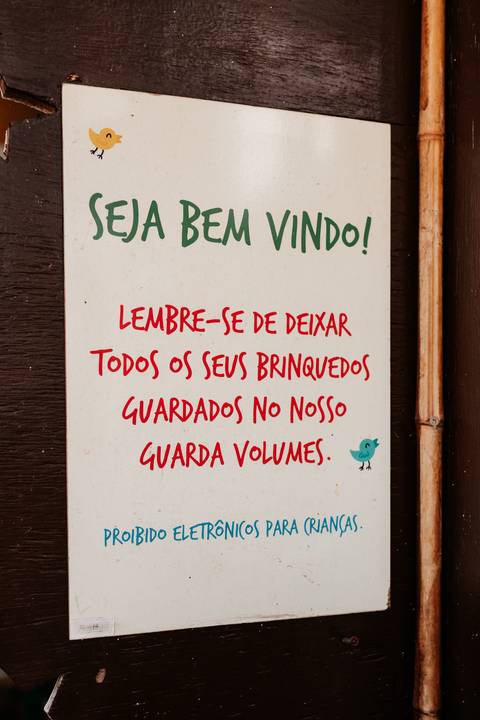 SEJA BEM VINDO!
LEMBRE-SE DE DEIXAR
TODOS OS SEUS BRINQUEDOS
GUARDADOS NO NOSSO
GUARDA VOLUMES.
PROIBIDO ELETRÔNICOS PARA CRIANÇAS.